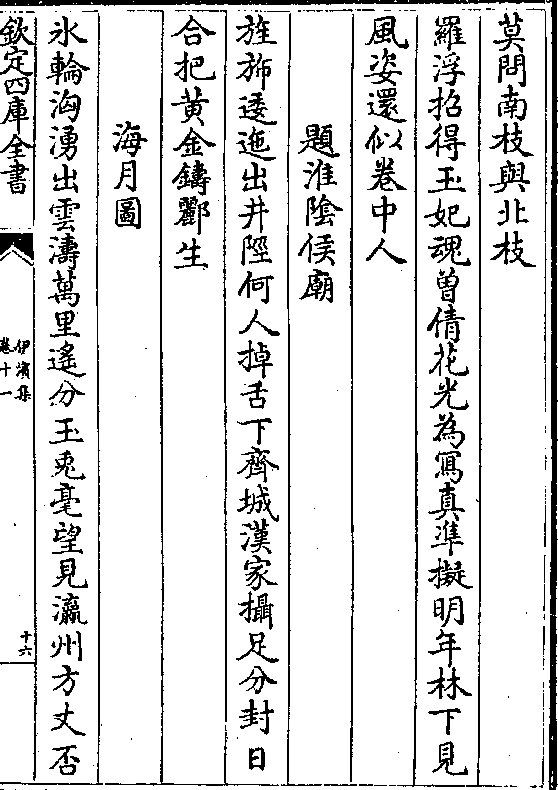 莫問南枝與北枝
羅浮招得玉妃魂曽倩花光為寫真準擬明年林下見
風姿還似卷中人
題淮隂侯廟
旌斾逶迤出井陘何人掉舌下齊城漢家攝足分封日
合把黄金鑄酈生
海月圖
氷輪洶湧出雲濤萬里遙分玉兎毫望見瀛州方丈否
欽定四庫全書
伊濱集
卷十一
十六